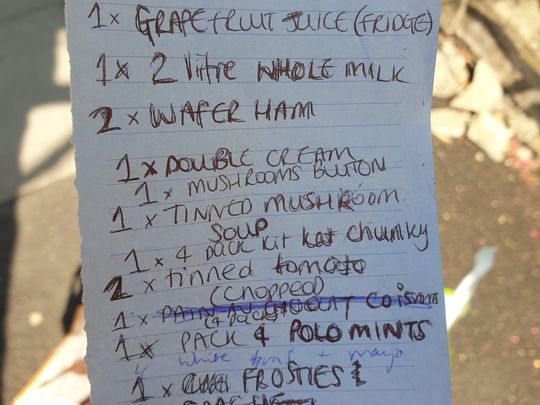 1 x GRAPEFRUIT JUICE (FRIDGE)
1 x 2 litre WHOLE MILK
2 x WAFER HAM
1 x DOUBLE CREAM
1 x MUSHROOMS BUTTON
1 x TINNED MUSHROOM
SOUP
1 x 4 pack kit kat chunky
2 x tinned tomato
(CHOPPED)
1 x PAIN AU CHOCOLAT
(4 PACK)
1 x PACK 4 POLO MINTS
white + mayo
1 x FROSTIES